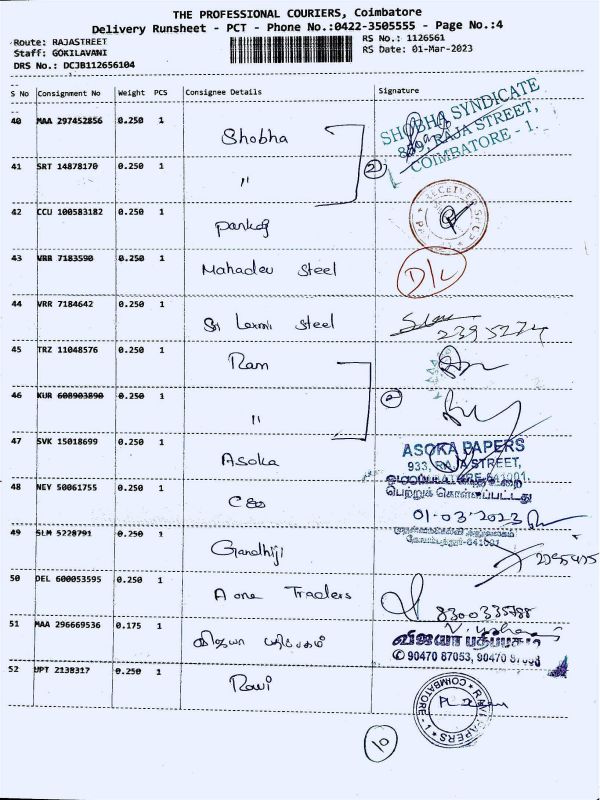 THE PROFESSIONAL COURIERS, Coimbatore
Delivery Runsheet - PCT - Phone No.:0422-3505555 - Page No.:4
Route: RAJASTREET
RS No.: 1126561
Staff: GOKILAVANI
RS Date: 01-Mar-2023
DRS No.: DCJB112656104
S No Consignment No Weight PCS Consignee Details Signature
40 MAA 297452856 0.250 1 Shobha
SHOBHA SYNDICATE
859, RAJA STREET,
COIMBATORE - 1.
41 SRT 14878170 0.250 1 "
2
42 CCU 100583182 0.250 1 Pankaj
43 VRR 7183590 0.250 1 Mahadev Steel D/L
44 VRR 7184642 0.250 1 Sri Laxmi Steel
2395274
45 TRZ 11048576 0.250 1 Ram
46 KUR 608903890 0.250 1 "
2
47 SVK 15018699 0.250 1 Asoka
ASOKA PAPERS
933, RAJA STREET,
48 NEY 50061755 0.250 1 CEO
பெற்றுக் கொள்ளப்பட்டது
01-03-2023
49 SLM 5228791 0.250 1 Gandhiji
50 DEL 600053595 0.250 1 A one Traders
8300335788
51 MAA 296669536 0.175 1 விஜயா பதிப்பகம்
விஜயா பதிப்பகம்
90470 87053, 90470
52 UPT 2138317 0.250 1 Ravi
RAVI PAPERS
COIMBATORE - 1
10